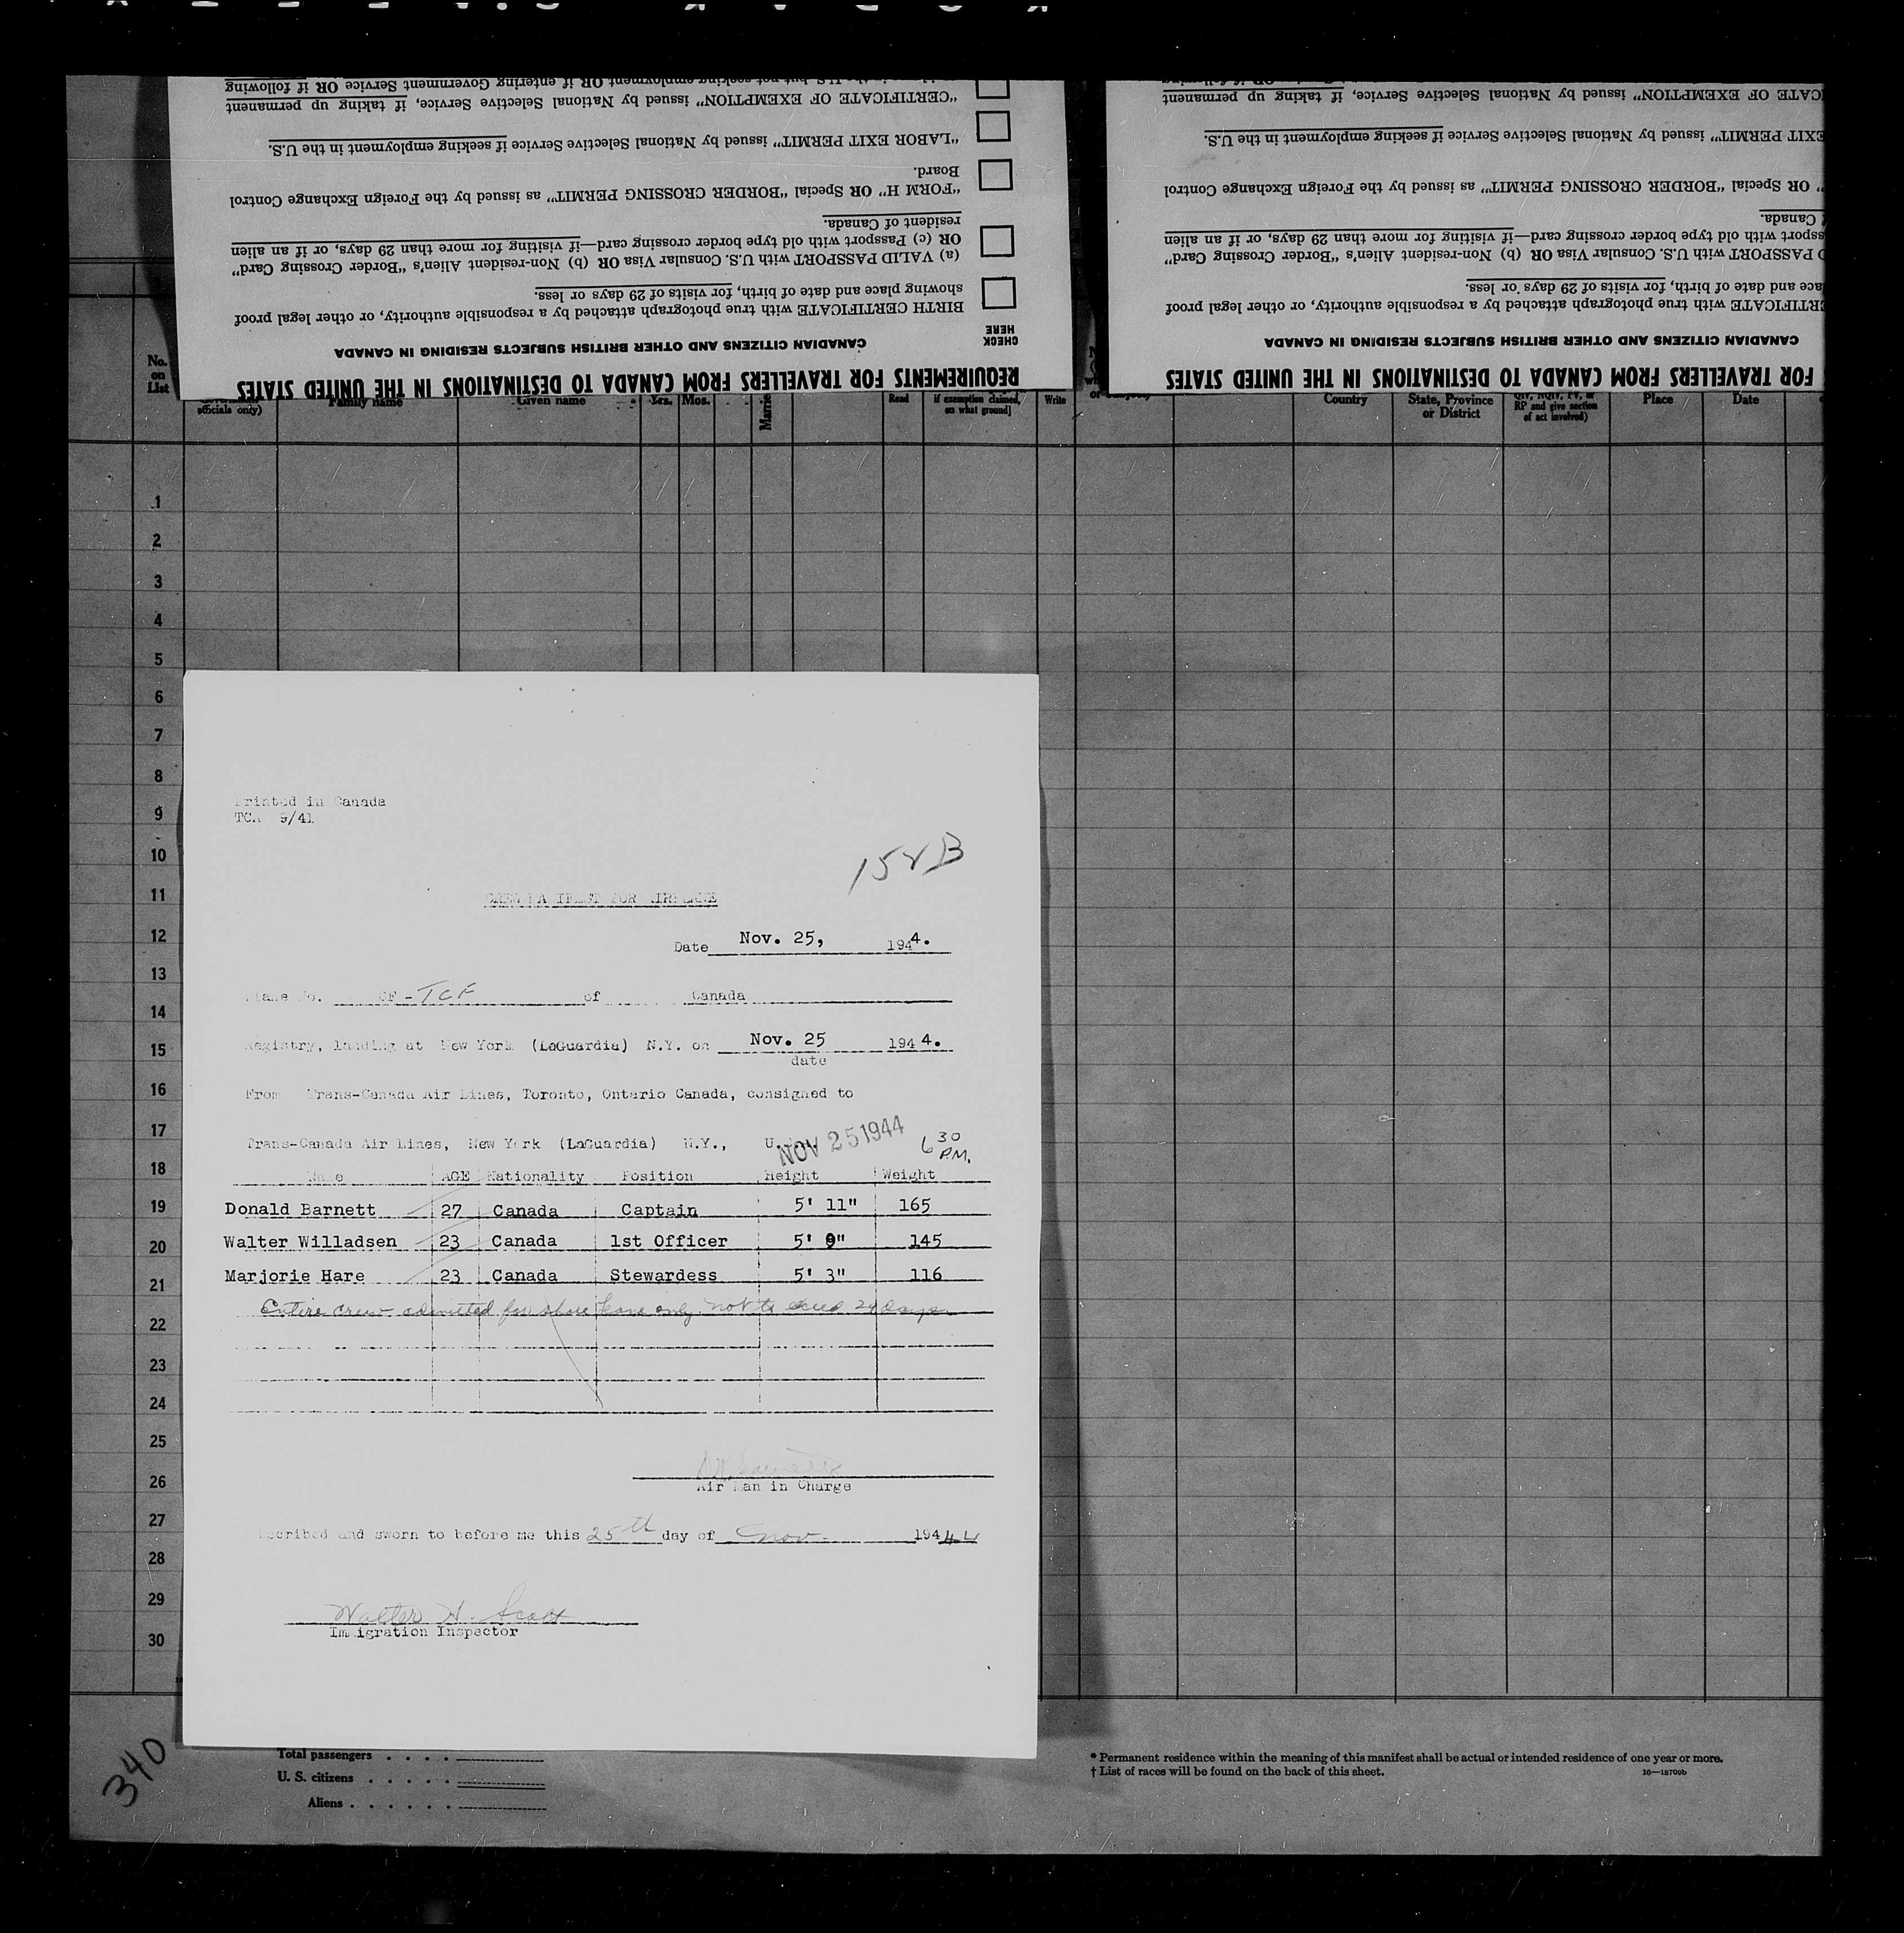 "CERTIFICATE OF EXEMPTION" issued by National Selective Service, if taking up permanent
"LABOR EXIT PERMIT" issued by National Selective Service if seeking employment in the U.S.
"FORM H" OR Special "BORDER CROSSING PERMIT" as issued by the Foreign Exchange Control
Board.
(a) VALID PASSPORT with U.S. Consular Visa OR (b) Non-resident Alien's "Border Crossing Card"
OR (c) Passport with old type border crossing card—if visiting for more than 29 days, or if an alien
resident of Canada.
BIRTH CERTIFICATE with true photograph attached by a responsible authority, or other legal proof
showing place and date of birth, for visits of 29 days or less.
CHECK
HERE
CANADIAN CITIZENS AND OTHER BRITISH SUBJECTS RESIDING IN CANADA
REQUIREMENTS FOR TRAVELLERS FROM CANADA TO DESTINATIONS IN THE UNITED STATES
EXEMPTION" issued by National Selective Service, if taking up permanent
EXIT PERMIT" issued by National Selective Service if seeking employment in the U.S.
OR Special "BORDER CROSSING PERMIT" as issued by the Foreign Exchange Control
PASSPORT with U.S. Consular Visa OR (b) Non-resident Alien's "Border Crossing Card"
with old type border crossing card—if visiting for more than 29 days, or if an alien
Canada.
with true photograph attached by a responsible authority, or other legal proof
and date of birth, for visits of 29 days or less.
CANADIAN CITIZENS AND OTHER BRITISH SUBJECTS RESIDING IN CANADA
FOR TRAVELLERS FROM CANADA TO DESTINATIONS IN THE UNITED STATES
No.
on
List
officials only) Family name Given name Yrs. Mos. Read if exemption claimed, on what ground] Write
Country State, Province or District RP and give section of act involved) Place Date
1
2
3
4
5
6
7
8
9
10
11
12
13
14
15
16
17
18
19
20
21
22
23
24
25
26
27
28
29
30
Printed in Canada
TCA 9/41
CREW MANIFEST FOR AIRPLANE
Date Nov. 25, 1944.
Plane No. CF-TCF of Canada
Registry, landing at New York (LaGuardia) N.Y. on Nov. 25 1944.
date
From Trans-Canada Air Lines, Toronto, Ontario Canada, consigned to
Trans-Canada Air Lines, New York (LaGuardia) N.Y.,
NOV 25 1944 6 30 P.M.
Name AGE Nationality Position Height Weight
Donald Barnett 27 Canada Captain 5' 11" 165
Walter Willadsen 23 Canada 1st Officer 5' 9" 145
Marjorie Hare 23 Canada Stewardess 5' 3" 116
Entire crew admitted for shore leave only not to exceed 29 days
Air Man in Charge
scribed and sworn to before me this 25th day of Nov. 1944
Walter H. Scott
Immigration Inspector
340
Total passengers
U. S. citizens
Aliens
* Permanent residence within the meaning of this manifest shall be actual or intended residence of one year or more.
† List of races will be found on the back of this sheet.